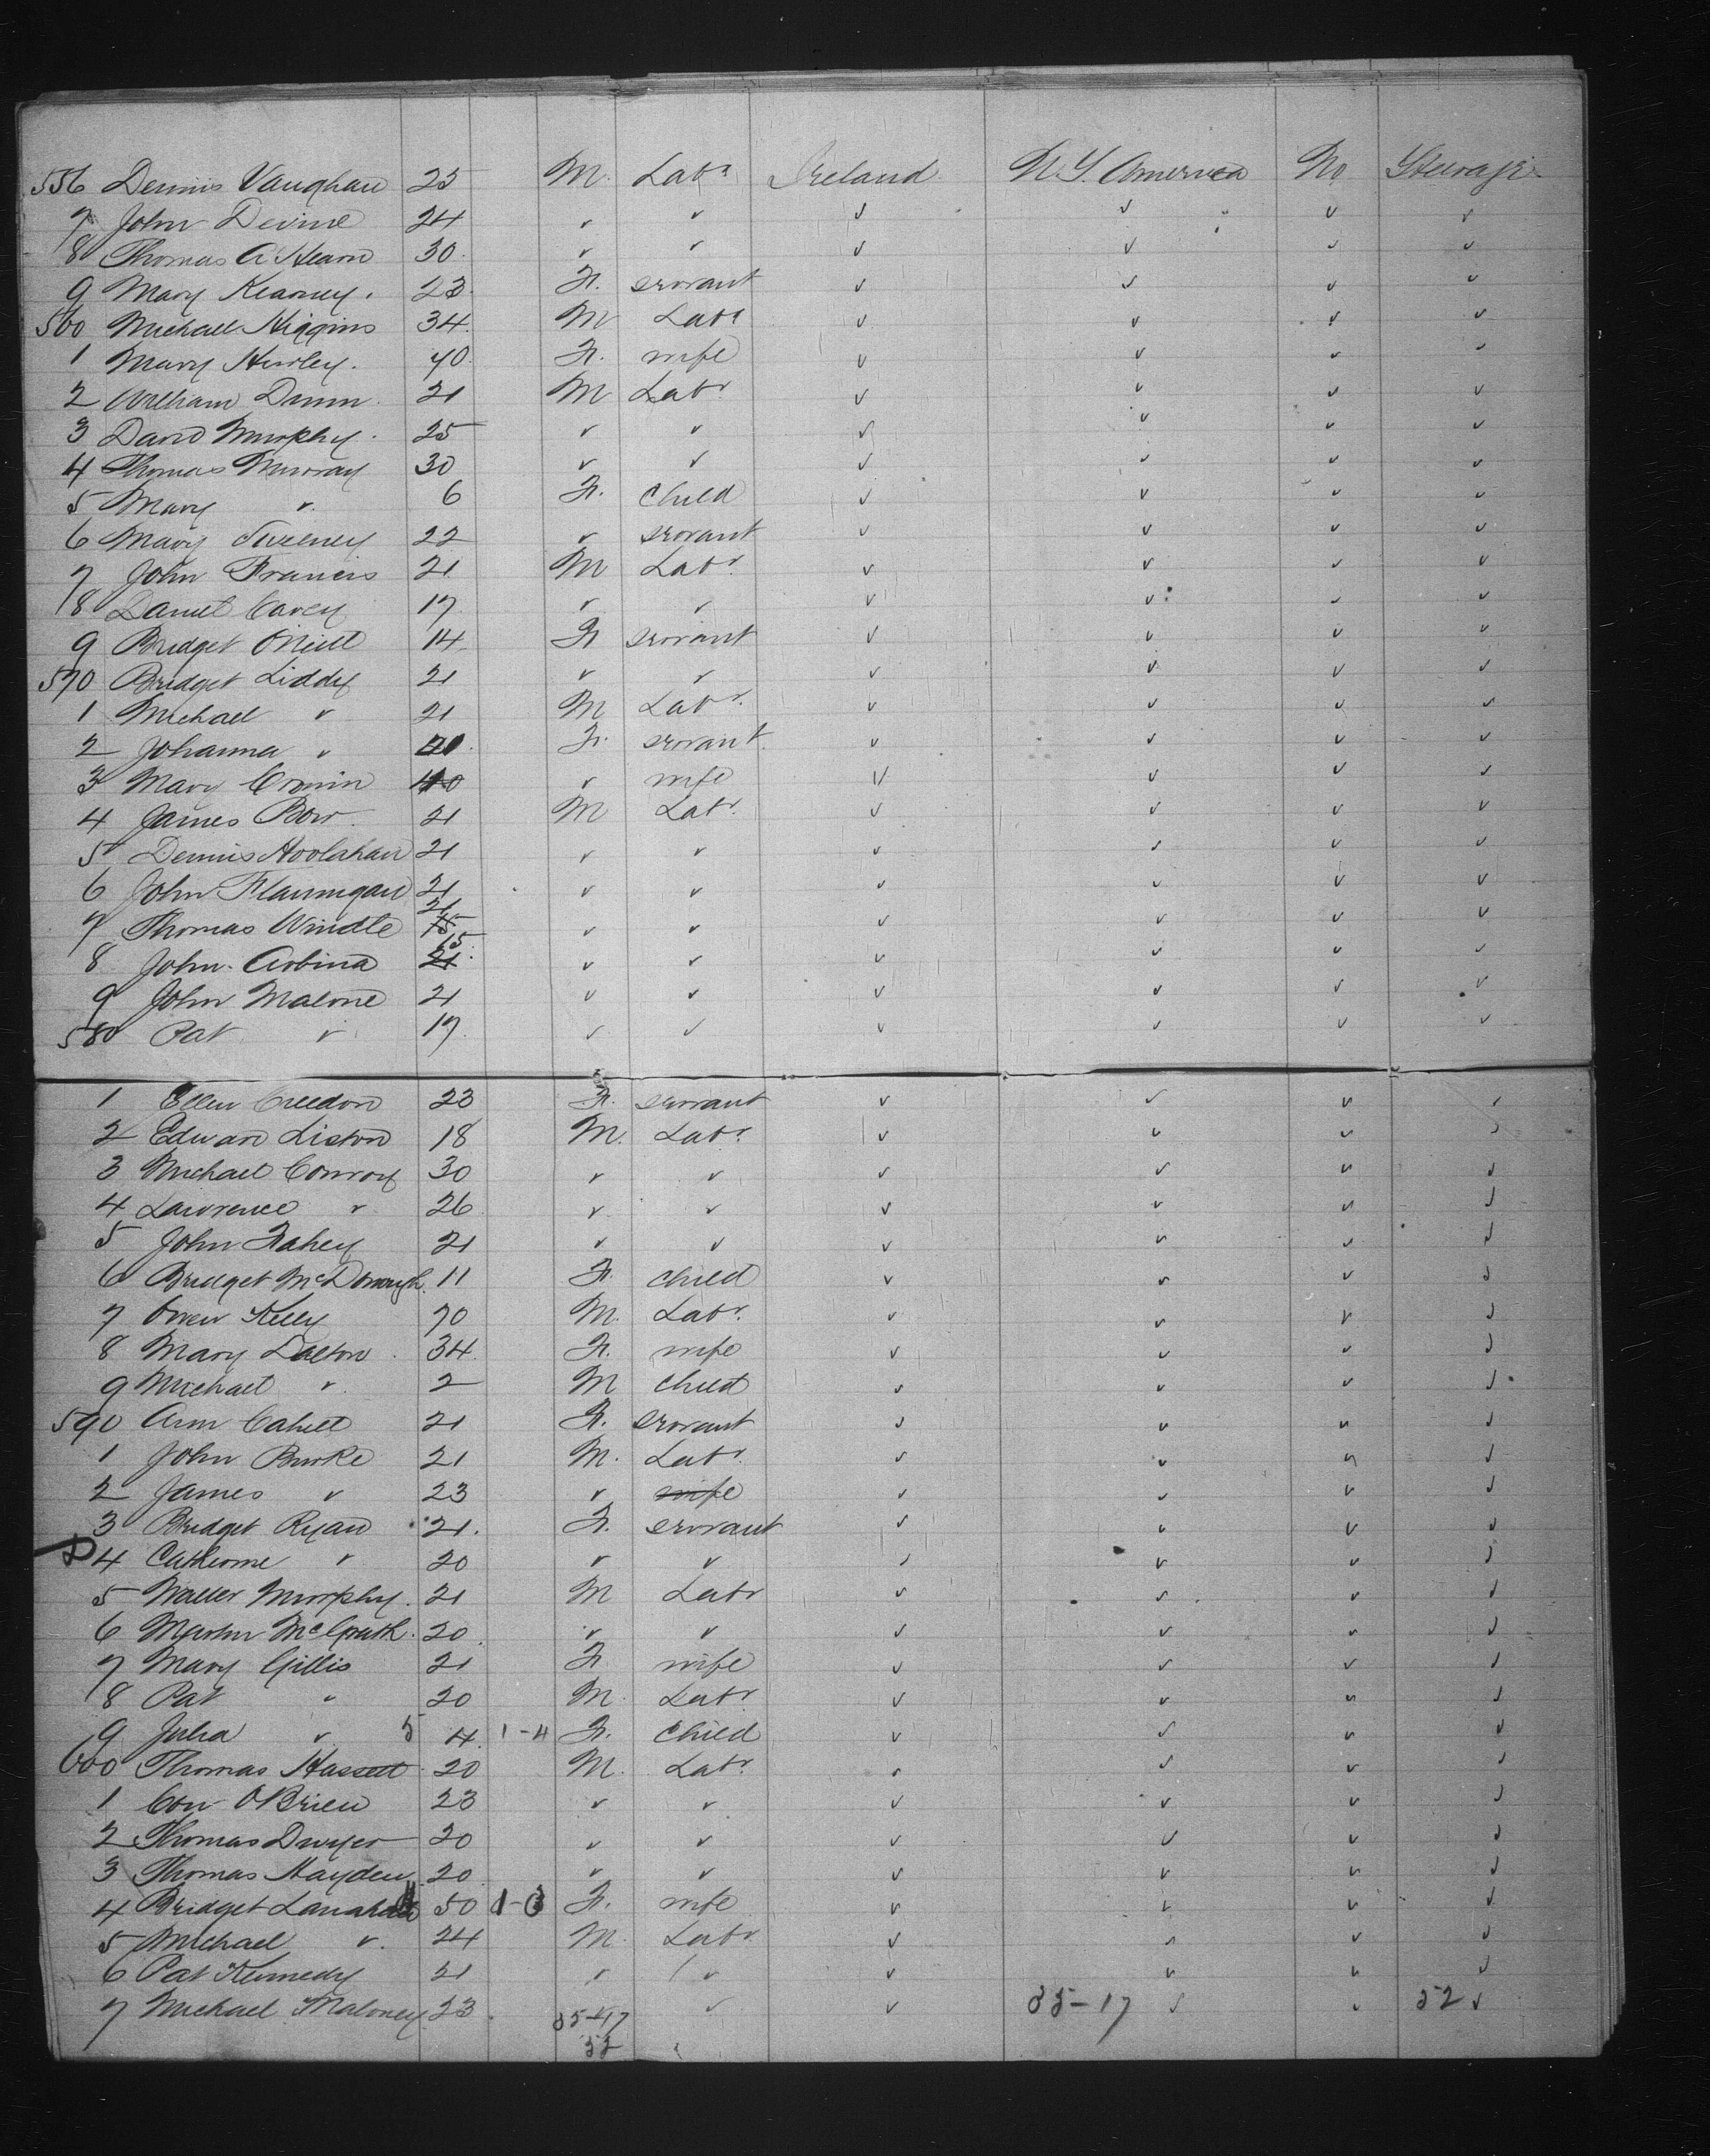 556 Dennis Vaughan 25 M. Labr Ireland U.S. America No Steerage
7 John Devine 24 " " " " " "
8 Thomas A Hearn 30 " " " " " "
9 Mary Kearney 23 F. servant " " " "
560 Michael Higgins 34 M Labr " " " "
1 Mary Hurley 40 F. wife " " " "
2 William Dunn 21 M Labr " " " "
3 David Murphy 25 " " " " " "
4 Thomas Murray 30 " " " " " "
5 Mary " 6 F. Child " " " "
6 Mary Sweeney 22 " servant " " " "
7 John Francis 21 M Labr " " " "
8 Daniel Carey 17 " " " " " "
9 Bridget O'Neill 14 F servant " " " "
570 Bridget Liddy 21 " " " " " "
1 Michael " 21 M Labr " " " "
2 Johanna " F. servant " " " "
3 Mary Cronin 40 " wife " " " "
4 James Bow 21 M Labr " " " "
5 Dennis Hoolahan 21 " " " " " "
6 John Flannigan 21 " " " " " "
7 Thomas Windle 21 " " " " " "
8 John 15 " " " " " "
9 John Malone 21 " " " " " "
580 Pat " 17 " " " " " "
1 Ellen Creedon 23 F. servant " " " "
2 Edward Liston 18 M. Labr " " " "
3 Michael Conroy 30 " " " " " "
4 Lawrence " 26 " " " " " "
5 John Fahey 21 " " " " " "
6 Bridget McDonough 11 F. child " " " "
7 Owen Kelly 70 M. Labr " " " "
8 Mary Dalton 34 F. wife " " " "
9 Michael " 2 M child " " " "
590 Ann Cahill 21 F. servant " " " "
1 John Burke 21 M. Labr " " " "
2 James " 23 " wife " " " "
3 Bridget Ryan 21 F. servant " " " "
4 Catherine " 20 " " " " " "
5 Walter Murphy 21 M Labr " " " "
6 Martin McGrath 20 " " " " " "
7 Mary Gillis 21 F wife " " " "
8 Pat " 20 M. Labr " " " "
9 Julia " 5 4 1-4 F. Child " " " "
600 Thomas Hassett 20 M. Labr " " " "
1 Con O'Brien 23 " " " " " "
2 Thomas Dwyer 20 " " " " " "
3 Thomas Hayden 20 " " " " " "
4 Bridget 50 F. wife " " " "
5 Michael " 24 M. Labr " " " "
6 Pat Kennedy 21 " " " " " "
7 Michael Maloney 23 35-17 " " 35-17 " " 52 "
52